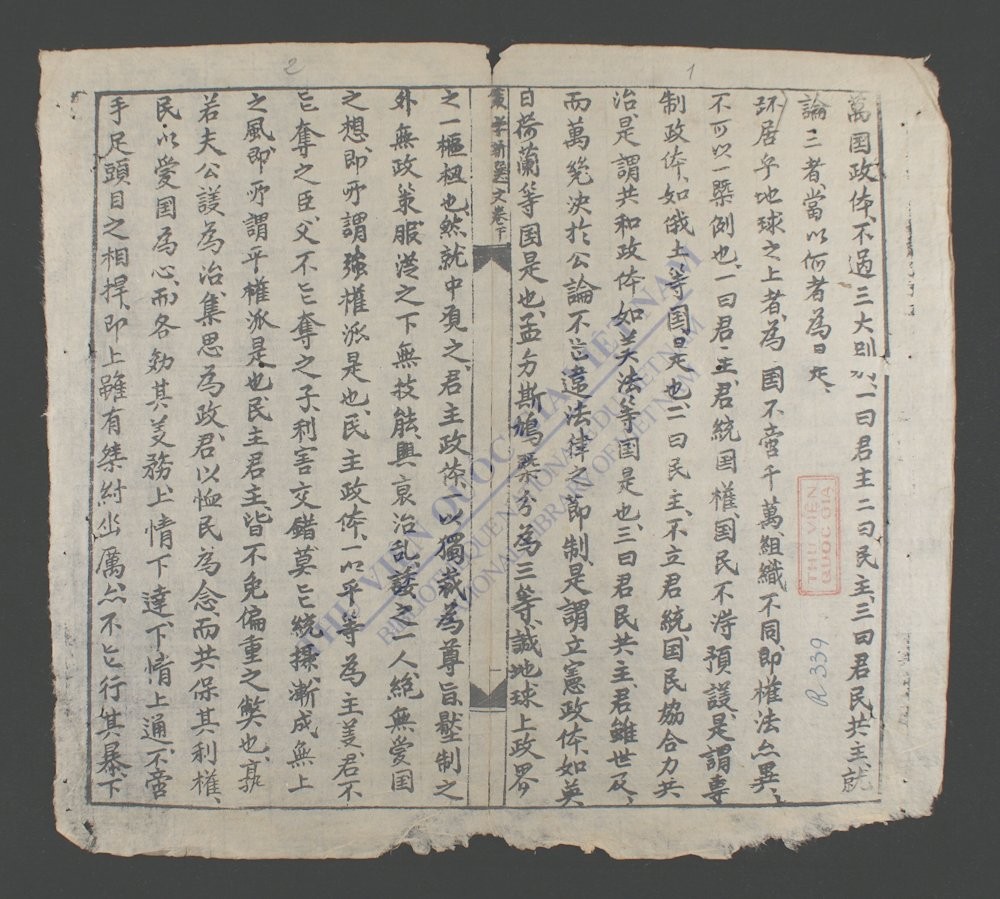 1
萬国政体、不過三大別、一曰君主二曰民主、三曰君民共主、就
論三者、當以何者為是、
環居乎地球之上者、為国不啻千萬組織不同、即權法亦異、
不可以一槩例也、一曰君主、君統国權、国民不淂預議、是謂專
制政体、如俄土等国是也、二曰民主、不立君統国民協合力共
治、是謂共和政体、如美法等国是也、三曰君民共主、君雖世及、
而萬幾决於公論不能違法律之節制、是謂立憲政体、如英
日荷蘭等国是也、孟分斯鳩槩分為三等、誠地球上政界
策學新選文卷下
2
之一樞杻也、然就中覔之、君主政体、以獨裁為尊旨、壓制之
外無政策、服從之下無技能、興衰治乱、諉之一人、絶無愛国
之想、即所謂強權派是也、民主政体、一以平等為主義、君不
能奪之臣、父不能奪之子、利害交錯莫能統攝、漸成無上
之風、即所謂平權派是也、民主君主、皆不免偏重之獘也、孰
若夫公議為治、集思為政、君以恤民為念、而共保其利權、
民以愛国為心、而各効其義務、上情下達、下情上通、不啻
手足頭目之相捍、即上雖有桀紂幽厲、亦不能行其暴、下
THƯ VIỆN
QUỐC GIA
R.339
THƯ VIỆN QUỐC GIA VIỆT NAM
BIBLIOTHEQUE NATIONALE DU VIETNAM
NATIONAL LIBRARY OF VIETNAM